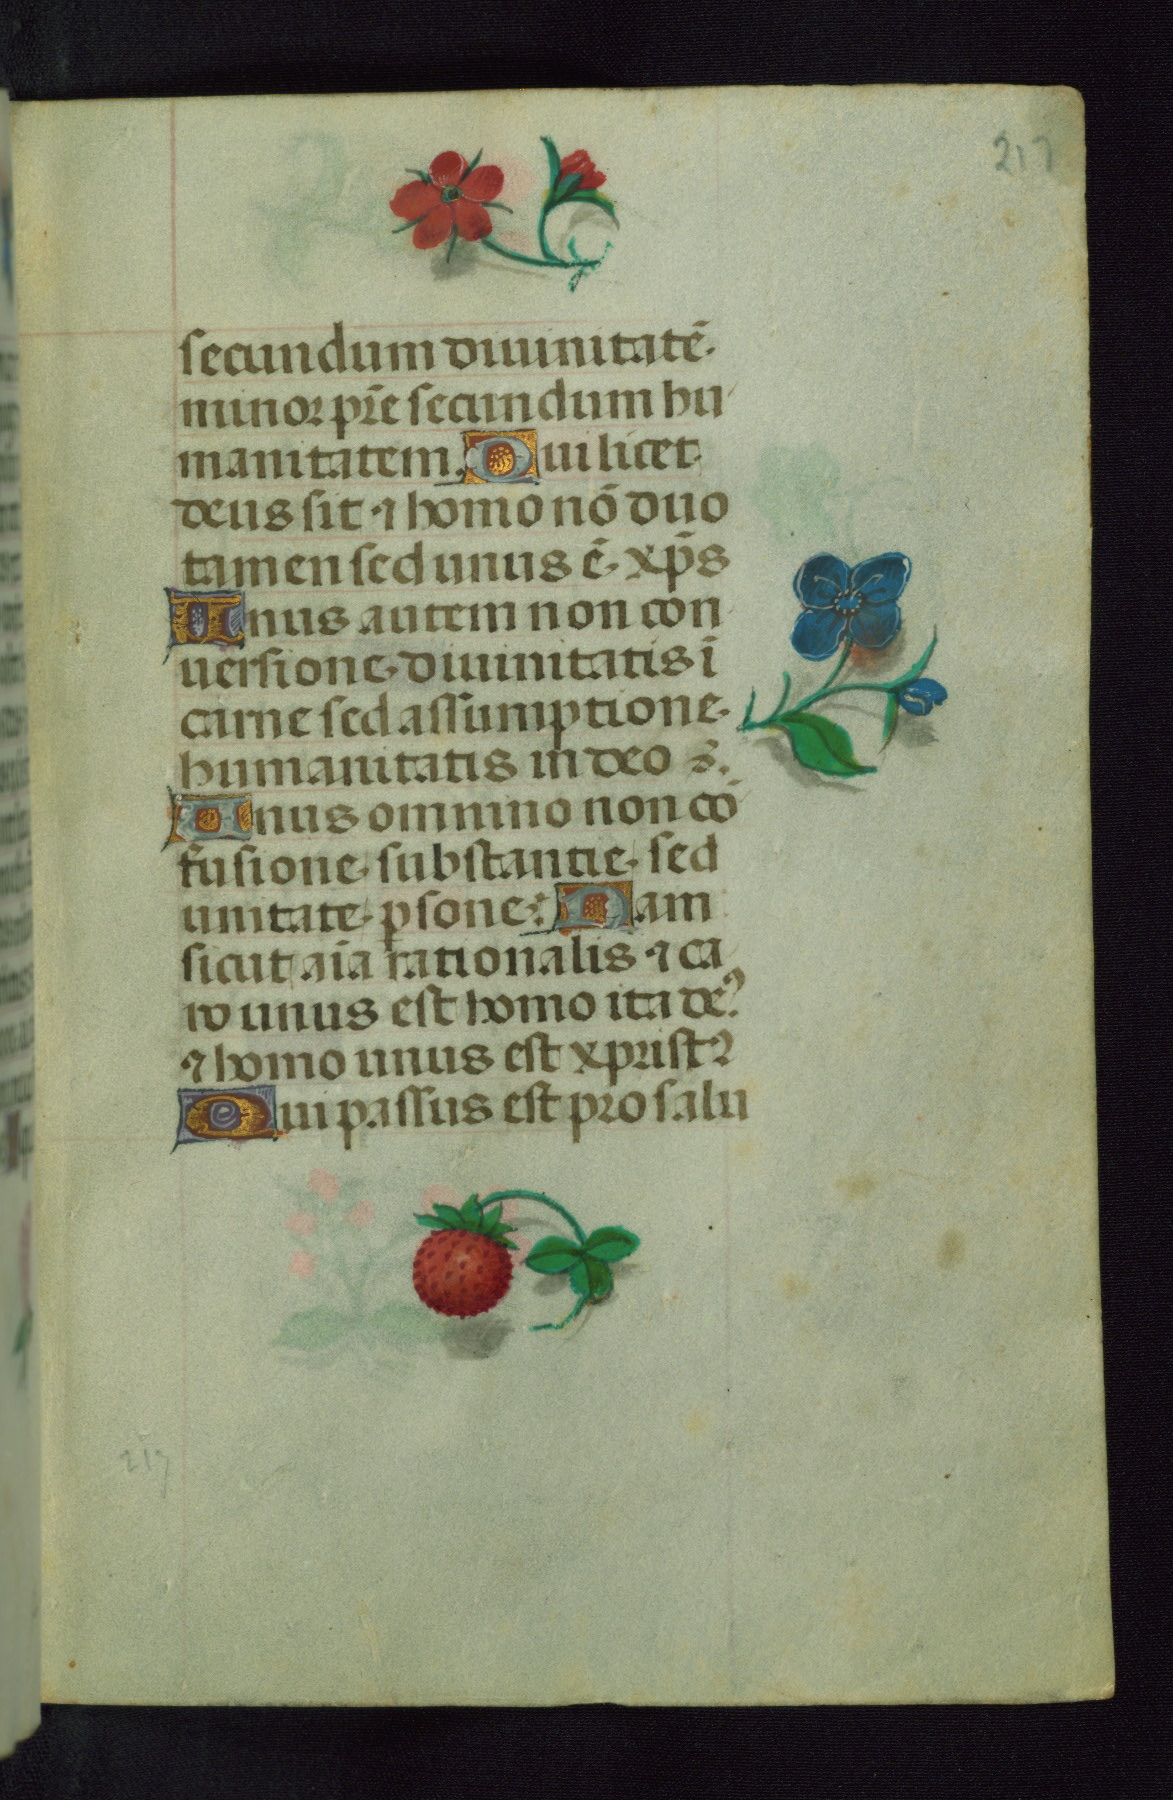 217
secundum diuinitatē.
minor pr̄e secundum hu
manitatem. Qui licet
deus sit ⁊ homo nō duo
tamen sed unus ē. xp̄s
Unus autem non con
uersione diuinitatis ī
carne sed assumptione
humanitatis in deo
Unus omnino non cō
fusione substantie sed
unitate ꝑsone: Nam
sicut aīa rationalis ⁊ ca
ro unus est homo ita deꝰ
⁊ homo unus est xpristꝰ
Qui passus est pro salu
217